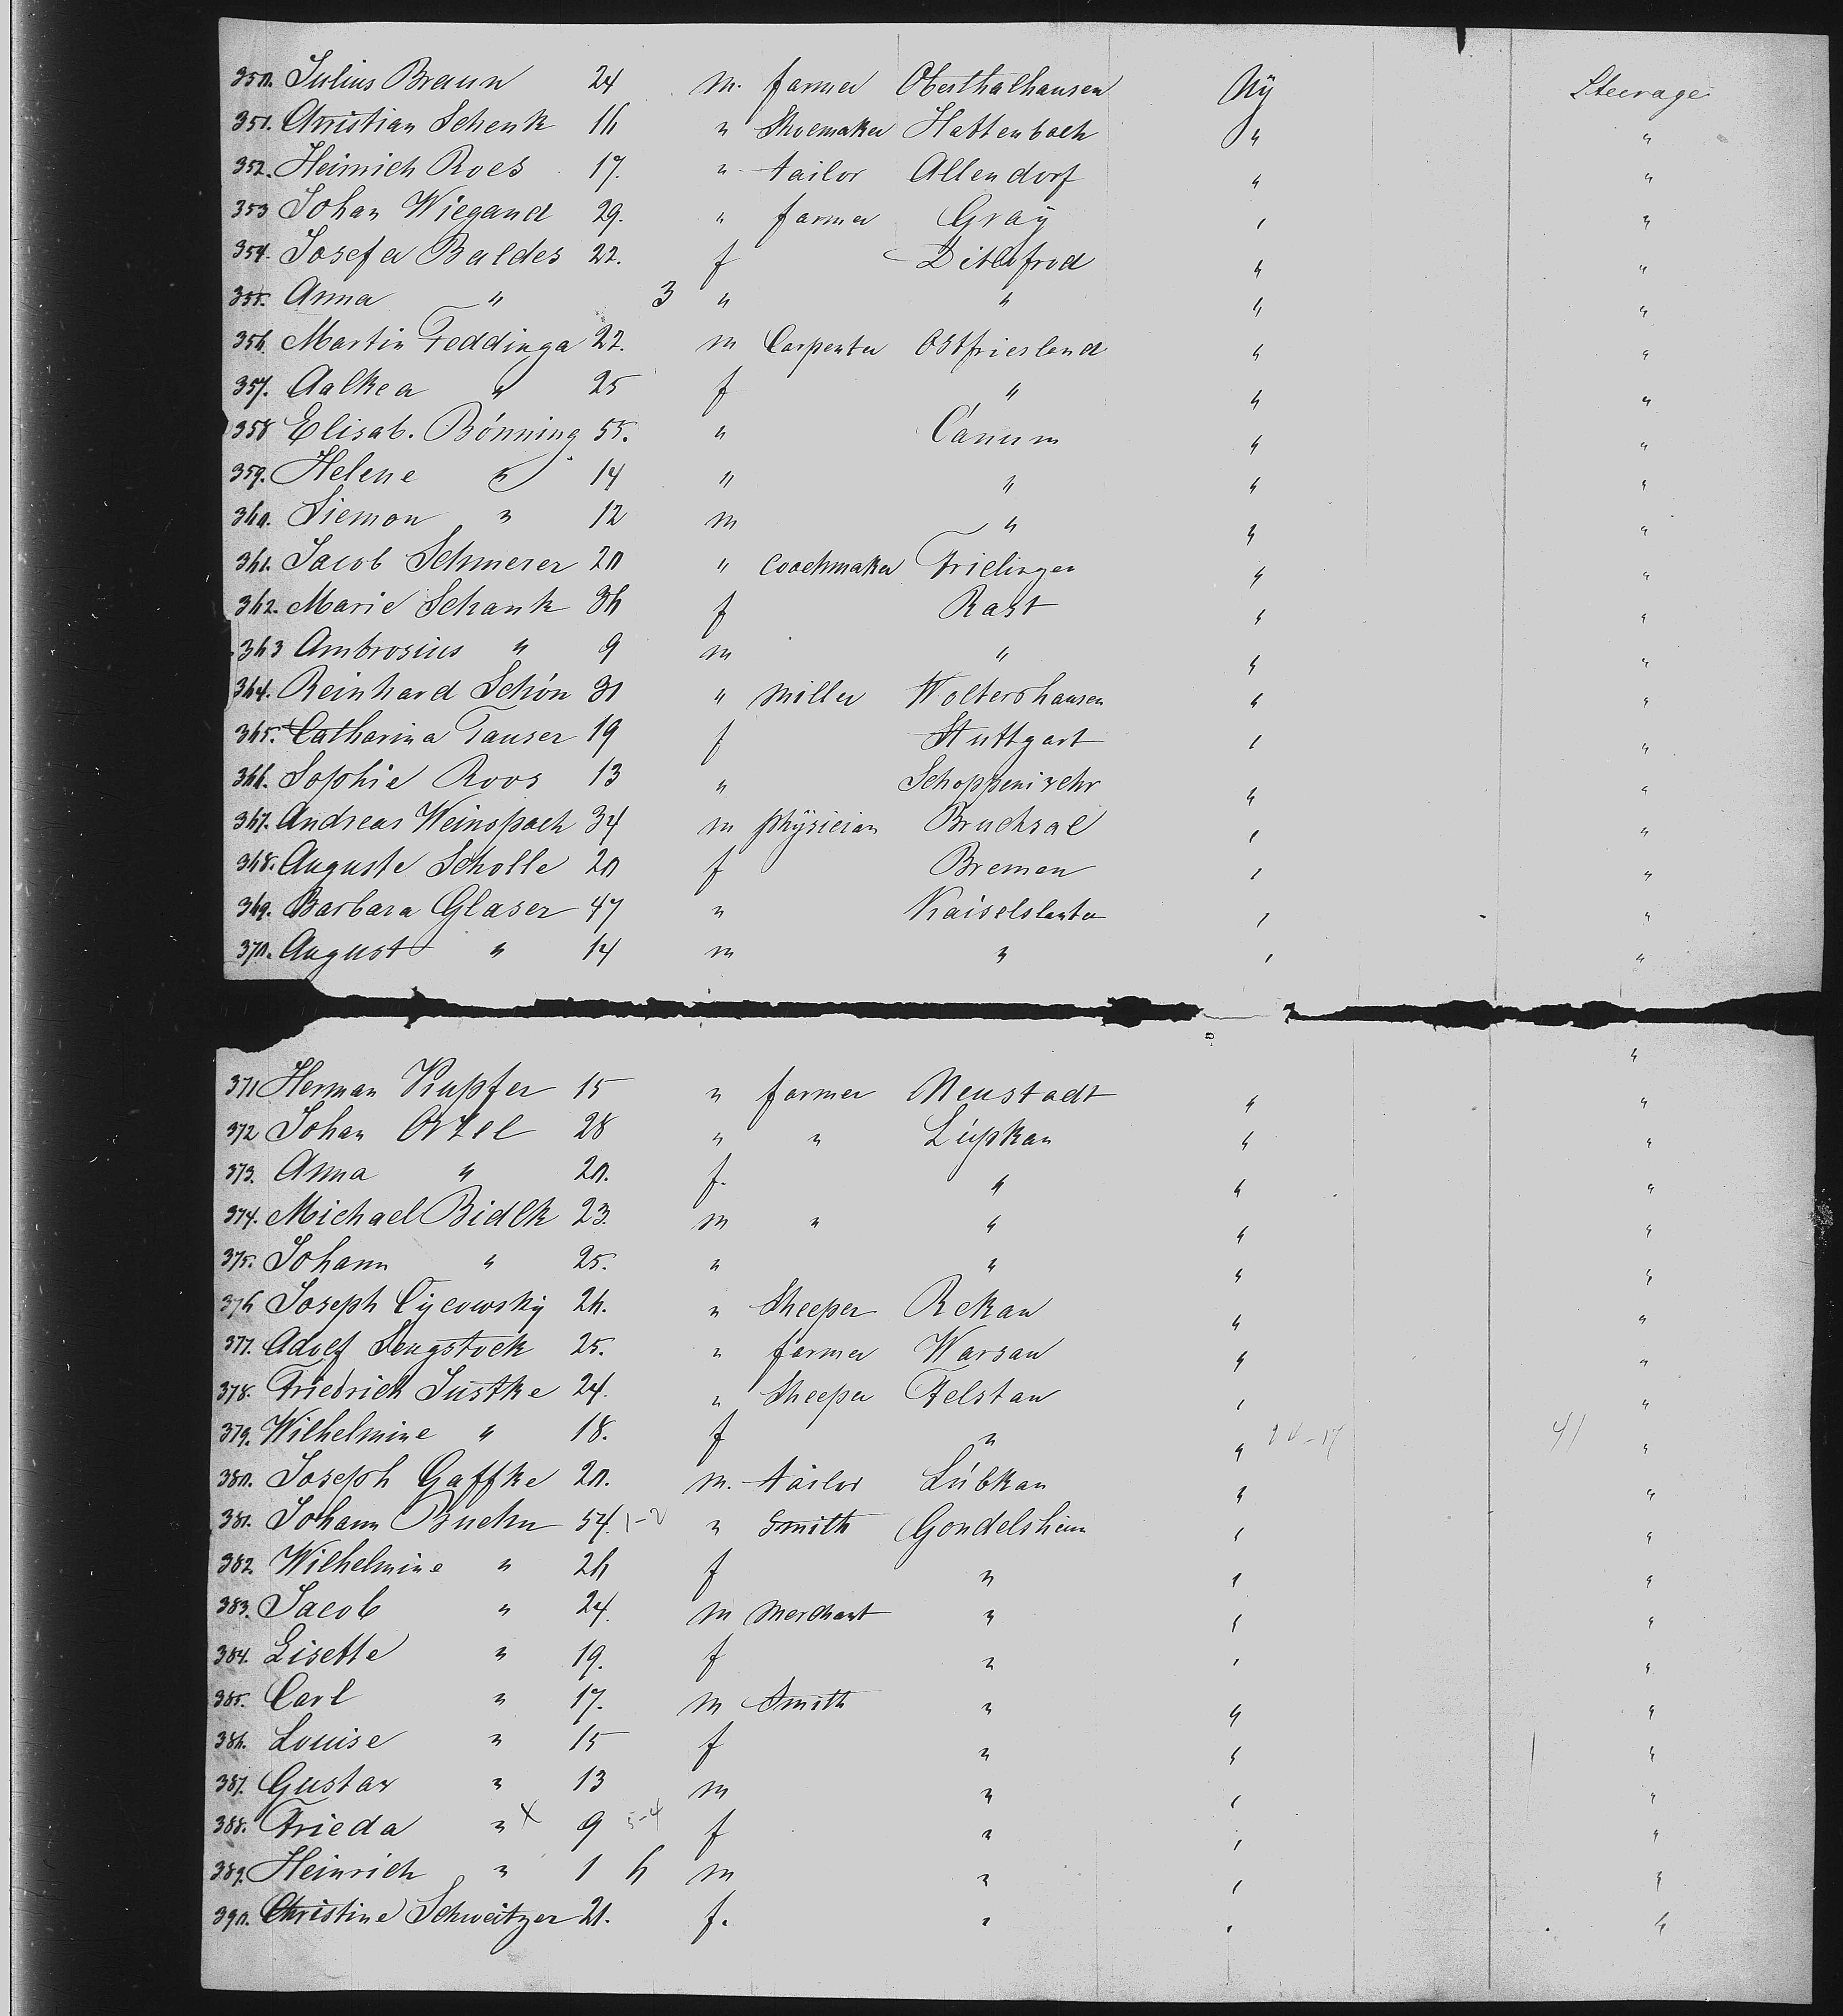 350. Julius Braun 24 m. farmer Oberthalhausen NY Steerage
351. Christian Schenk 16 " Shoemaker Hattenbach " "
352. Heinrich Roes 17. " tailor Allendorf " "
353 Johan Wiegand 29. " farmer Gray " "
354. Josefa Baldes 22. f Ditlofrod " "
355. Anna " 3 " " " "
356. Martin Feddinga 22. m Carpenter Ostfriesland " "
357. Aalkea " 25 f " " "
358 Elisab. Bönning 55. " Canum " "
359. Helene " 14 " " " "
360. Siemon " 12 m " " "
361. Jacob Schmerer 20 " Coachmaker Frielingen " "
362. Marie Schank 36 f Rast " "
363 Ambrosius " 9 m " " "
364. Reinhard Schön 31 " Miller Woltershausen " "
365. Catharina Tauser 19 f Stuttgart " "
366. Sophie Roos 13 " " "
367. Andreas Weinspach 34 m physician Bruchsal " "
368. Auguste Scholle 20 f Bremen " "
369. Barbara Glaser 47 " Kaiselslauter " "
370. August " 14 m " " "
"
371 Herman Kupfer 15 " farmer Neustadt " "
372 Johan Orzel 28 " " Lüpkan " "
373. Anna " 20. f. " " "
374. Michael Bidlk 23. m " " " "
375. Johann " 25. " " " "
376 Joseph Cycowsky 26. " Sheeper Rekan " "
377. Adolf Sengstock 25. " farmer Warsau " "
378. Friedrich Justke 24. " Sheeper Felstan " "
379. Wilhelmine " 18. f " " 41 "
380. Joseph Gaffke 20. m. tailor Lübkan " "
381. Johann Buehn 54. 1-2 " Smith Gondelsheim " "
382. Wilhelmine " 26 f " " "
383. Jacob " 24. m Merchant " " "
384. Lisette " 19. f " " "
385. Carl " 17. m Smith " " "
386. Louise " 15 f " " "
387. Gustav " 13 m " " "
388. Frieda " x 9 5-4 f " " "
389. Heinrich " 1 6 m " " "
390. Christine Schweitzer 21. f. " " "